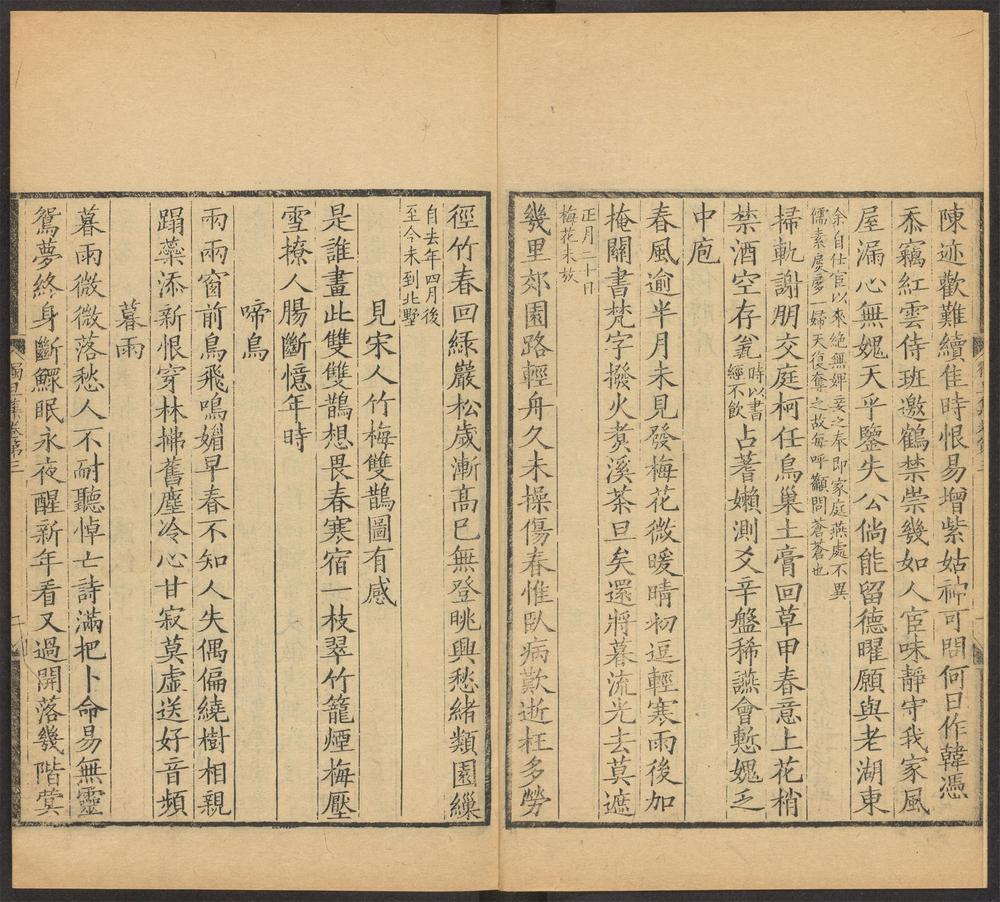 陳迹歡難續佳時恨易增紫姑神可問何日作韓憑
忝竊紅雲侍班邀鶴禁崇幾如人宦味靜守我家風
屋漏心無媿天乎鑒失公倘能留德曜願與老湖東
余自仕宦以來絶無婢妾之奉即家庭燕處不異
儒素煢煢一婦天復奪之故每呼籲問蒼蒼也
掃軌謝朋交庭柯任鳥巢土膏回草甲春意上花梢
禁酒空存瓮時以書經不飲占蓍嬾測爻辛盤稀讌會慙媿乏
中庖
春風逾半月未見發梅花微暖晴初逗輕寒雨後加
掩關書梵字撥火煑溪茶旦矣還將暮流光去莫遮
正月二十日
梅花未放
幾里郊園路輕舟久未操傷春惟臥病歎逝枉多勞
徑竹春回綠巖松歲漸高已無登眺興愁緒類園繅
自去年四月後
至今未到北墅
見宋人竹梅雙鵲圖有感
是誰畫此雙雙鵲想畏春寒宿一枝翠竹籠煙梅壓
雪撩人腸斷憶年時
啼鳥
兩兩窗前鳥飛鳴媚早春不知人失偶偏繞樹相親
蹋蘂添新恨穿林拂舊塵冷心甘寂莫虛送好音頻
暮雨
暮雨微微落愁人不耐聽悼亡詩滿把卜命易無靈
鴛夢終身斷鰥眠永夜醒新年看又過開落幾階蓂